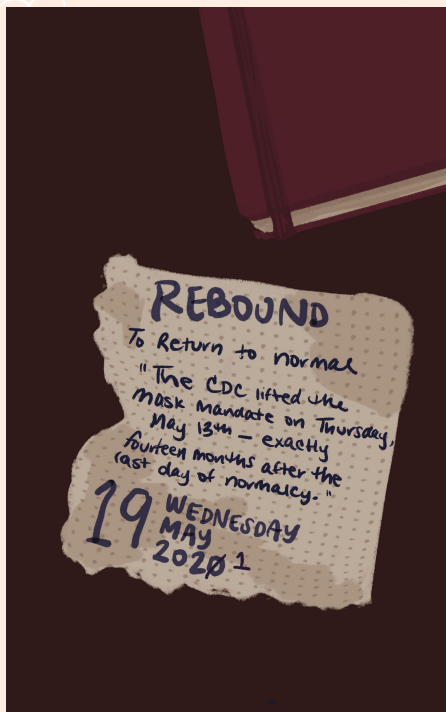 REBOUND
To Return to normal
"The CDC lifted the
mask mandate on Thursday,
May 13th – exactly
fourteen months after the
last day of normalcy."
19 WEDNESDAY
MAY
2020 1